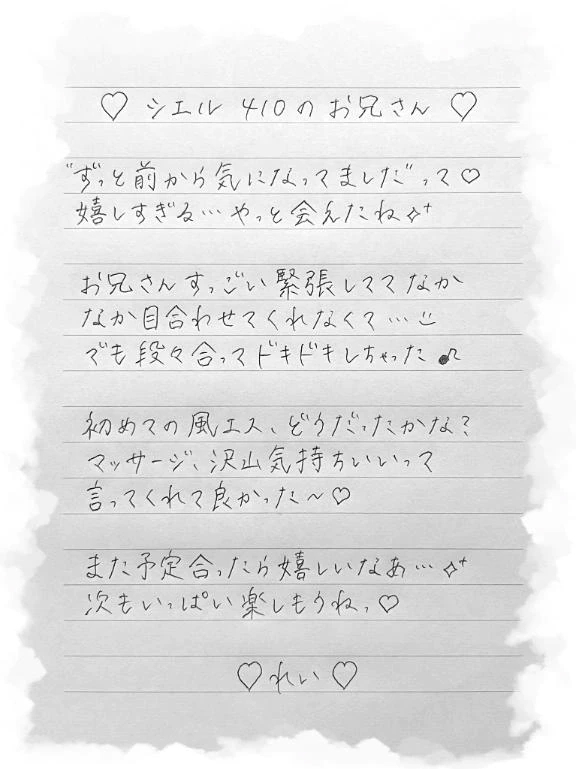 ♡ シエル 410のお兄さん ♡
"ずっと前から気になってました"って♡
嬉しすぎる…やっと会えたね✧⁺
お兄さんすっごい緊張しててなか
なか目合わせてくれなくて…
でも段々合ってドキドキしちゃった♪
初めての風エス、どうだったかな?
マッサージ、沢山気持ちいいって
言ってくれて良かった〜♡
また予定合ったら嬉しいなあ…✧⁺
次もいっぱい楽しもうねっ♡
♡ れい ♡